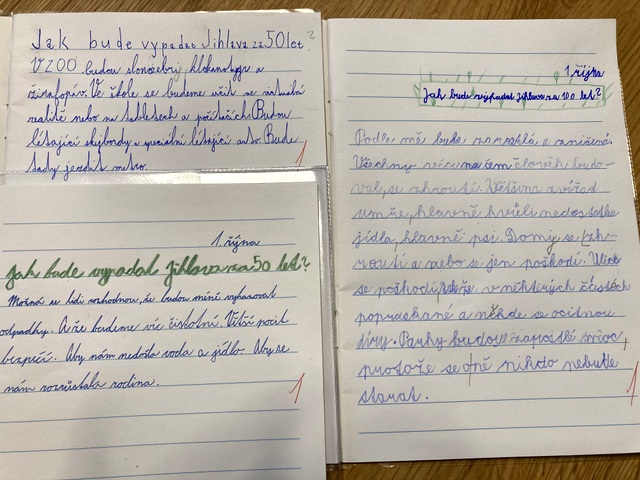 Jak bude vypadat Jihlava za 50 let?
V ZOO budou slonožebrij, klokanotygr a
žirafopáv. Ve škole se budeme učit ve virtuální
realitě nebo na tabletech a počítačích. Budou
létající skybordy a speciální létající auto. Bude
tady jezdit metro.
1
1. října
Jak bude vypadat Jihlava za 50 let?
Možná se lidi rozhodnou, že budou míně vyhazovat
odpadky. A že budeme víc čistotní. Větší pocit
bezpečí. Aby nám nedošla voda a jídlo. Aby se
nám rozrůstala rodina.
1
1. října
Jak bude vypadat Jihlava za 100 let?
Podle mě bude zarostlá a zničená.
Všechny co na čem člověk budo-
val, se zhroutí. Většina zvířat
umře, hlavně kvůli nedostatku
jídla, hlavně psi. Domy se zh-
routí a nebo se jen poškodí. Ulice
se poškodí, v některých částech
popraskané a někde se ocitnou
díry. Parky budou zarostlé
protože se o ně nikdo nebude
starat.
1